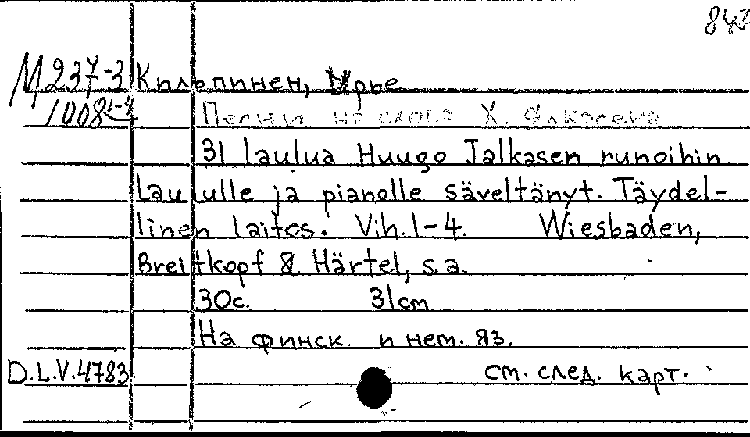 843
М 237-3 Кильпинен, Ирье
1008 1-4 Песни на слова Х. Ялкасена
31 laulua Huugo Jalkasen runoihin
Laululle ja pianolle säveltänyt. Täydel-
linen laitos. Vih. 1-4. Wiesbaden,
Breitkopf & Härtel, s.a.
30с. 31cm
На финск. и нем. яз.
D.L.V.4783 см. след. карт.